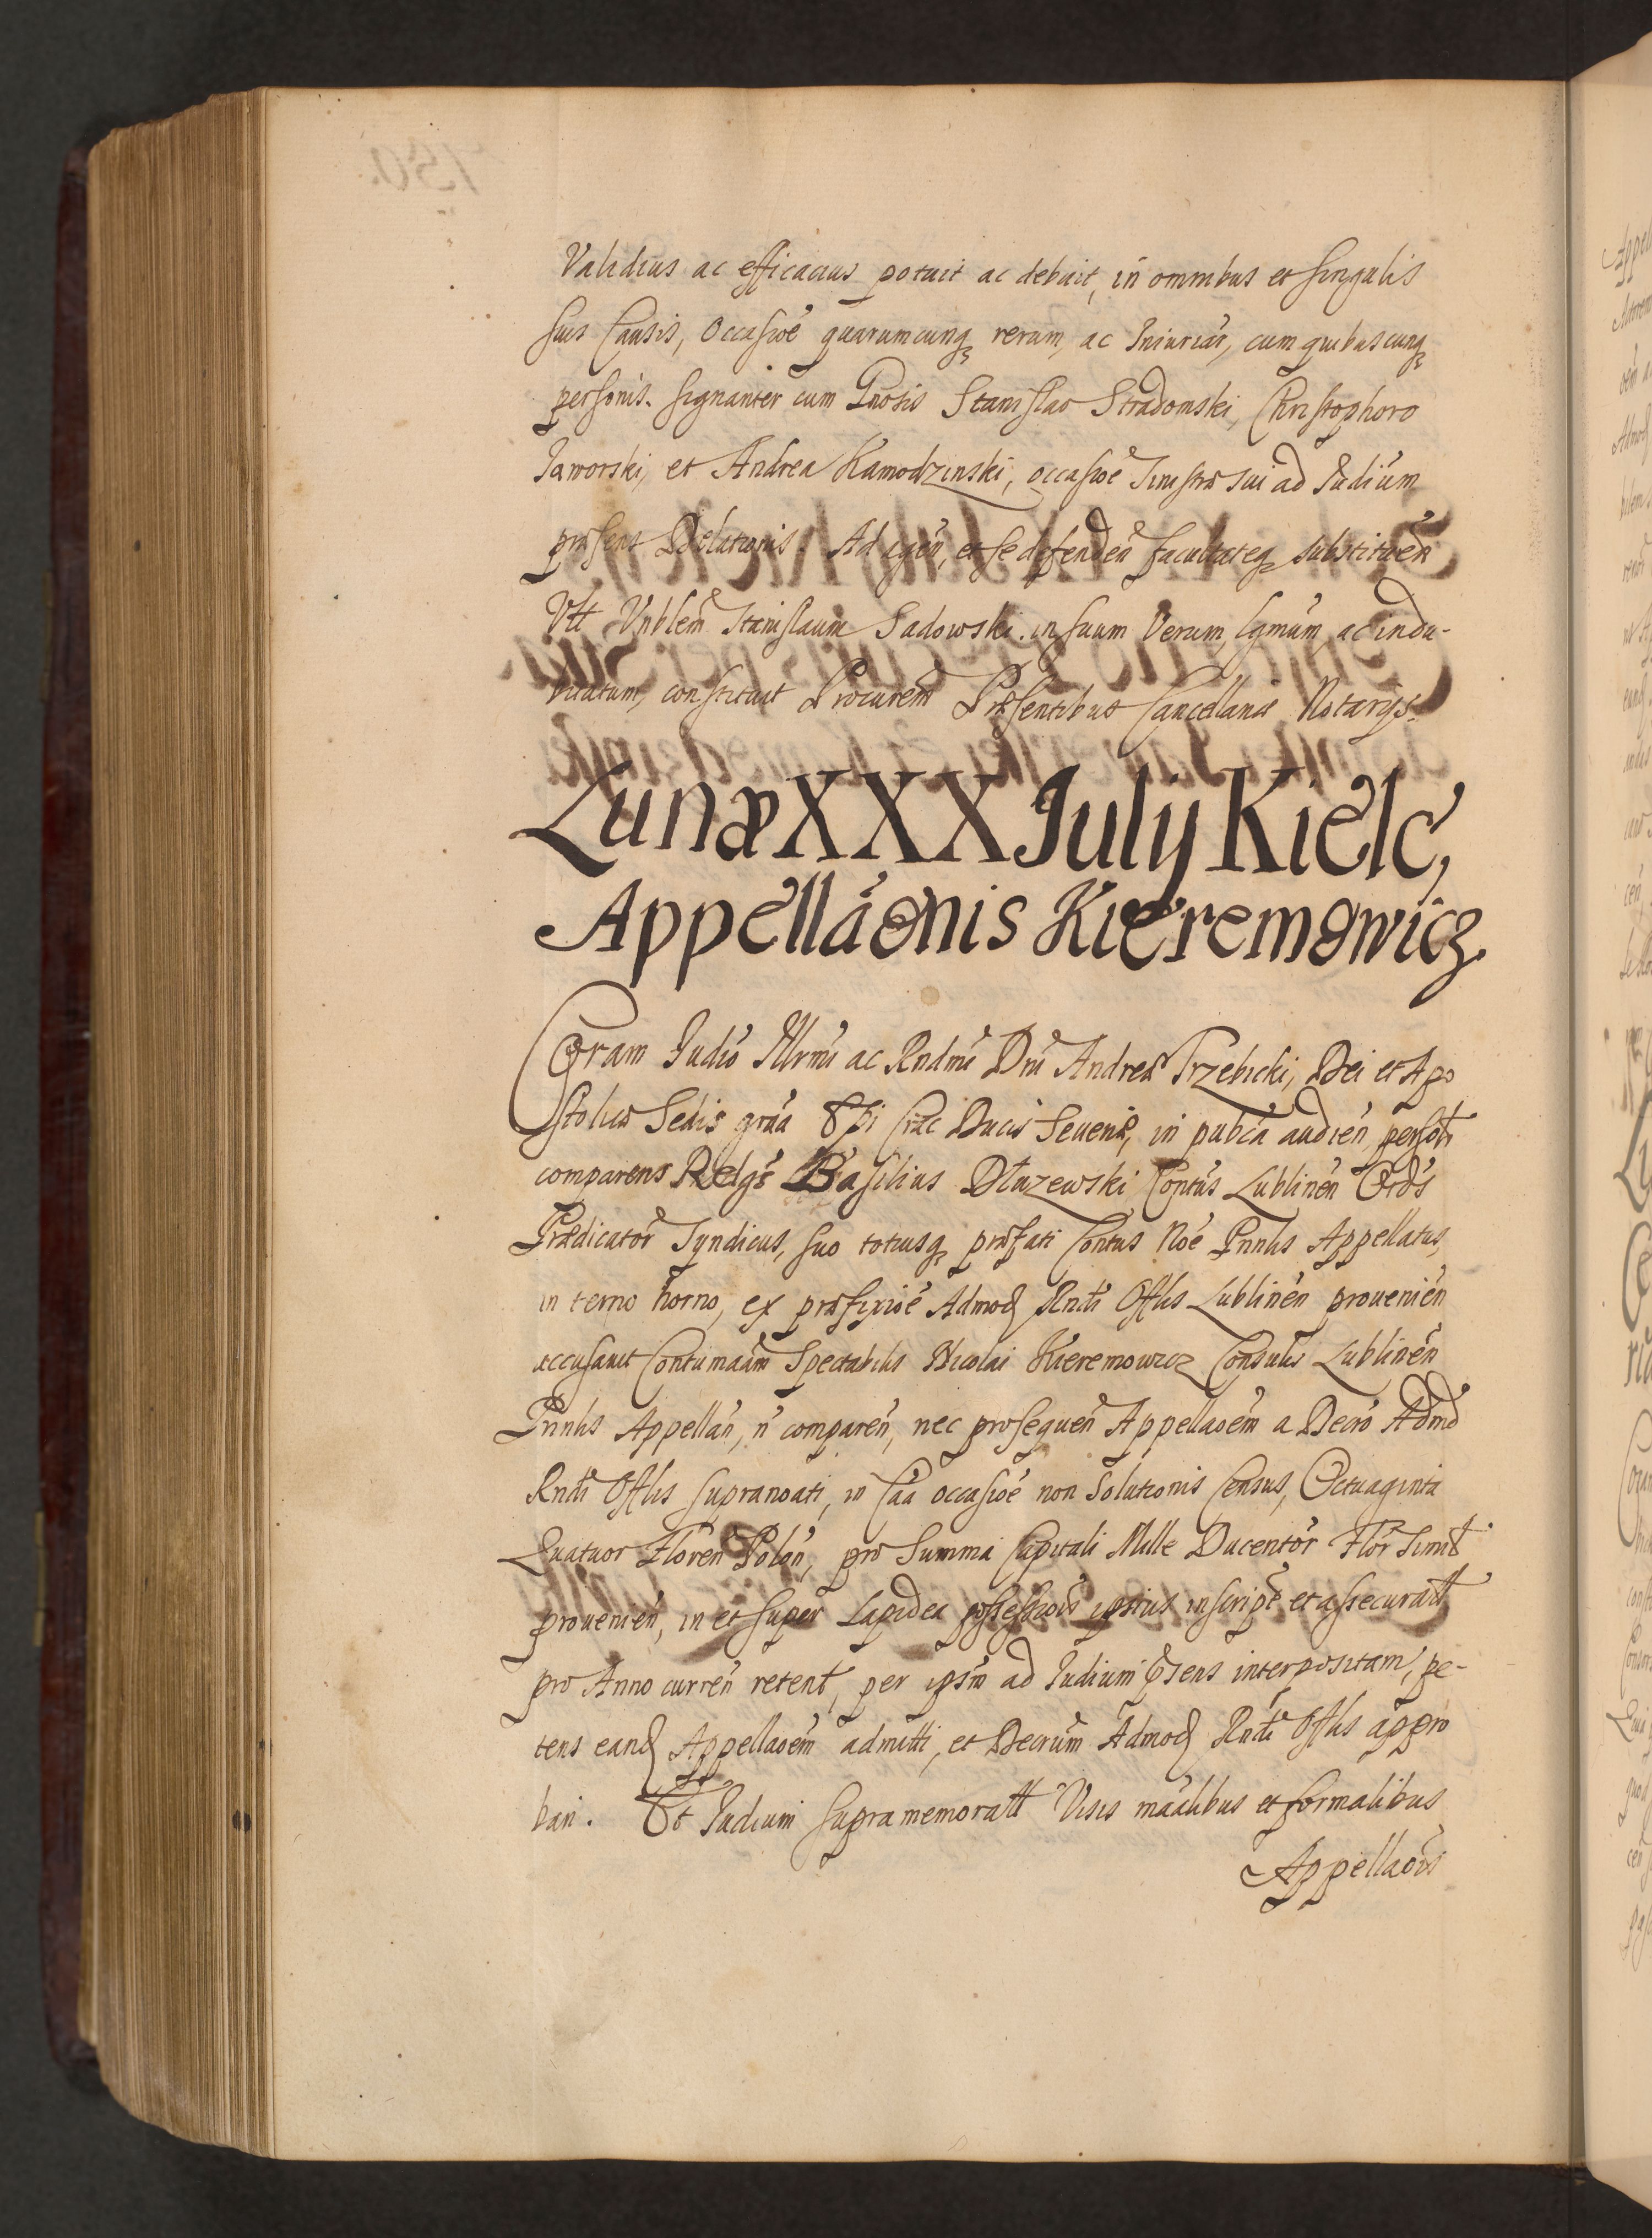 Validius ac efficacius potuit ac debuit, in omnibus et singulis
suis Causis, Occasioē quarumcunq rerum, ac Iniuriar, cum quibuscunq
personis. signanter cum Gnosis Stanislao Stradomski, Christophoro
Jaworski, et Andrea Kamodzinski, occasioē Sinistræ sui ad Iudium
præsens Delationis. Ad agen, et se defenden facultateq substituen
Vtt Vnblem Stanislaum Sadowski. in suum Verum, lgmum, ac indu-
bitatum, constituit Procurem Præsentibus Cancellariæ Notarijs.
Lunæ XXX July Kielc,
Appellaōnis Kieremowicz.
Coram Iudio Illrmi ac Rndmi Dni Andreæ Trzebicki, Dei et Apo
stolicæ Sedis gra Epi Crac Ducis Seueriæ, in pubca audien persotr
comparens Relgs Basilius Dluzewski Contus Lublinen Ords
Prædicator Syndicus, suo totiusq præfati Contus Noē Prnlis Appellatus,
in termo horno, ex præfixioē Admod Rndi Offlis Lublinen prouenien
accusauit Contumaam Spectabilis Nicolai Kieremowicz Consulis Lublinen
Prnlis Appellan, n comparen, nec prosequen Appellaoēm a Decro Admd
Rndi Offlis supranoati, in Caa occasioē non Solutionis Census, Octuaginta
Quatuor Floren Polon, pro Summa Capitali Mille Ducentor Flor Simlt
prouenien, in et super Lapidea possessiois ipsius inscript et assecuratt
pro Anno curren retent, per ipsm ad Iudium psens interpositam, pe-
tens eand Appellaoēm admitti, et Decrum Admod Rndi Offlis appro
bari. Et Iudium supramemoratt Visis maalibus et formalibus
Appellaois